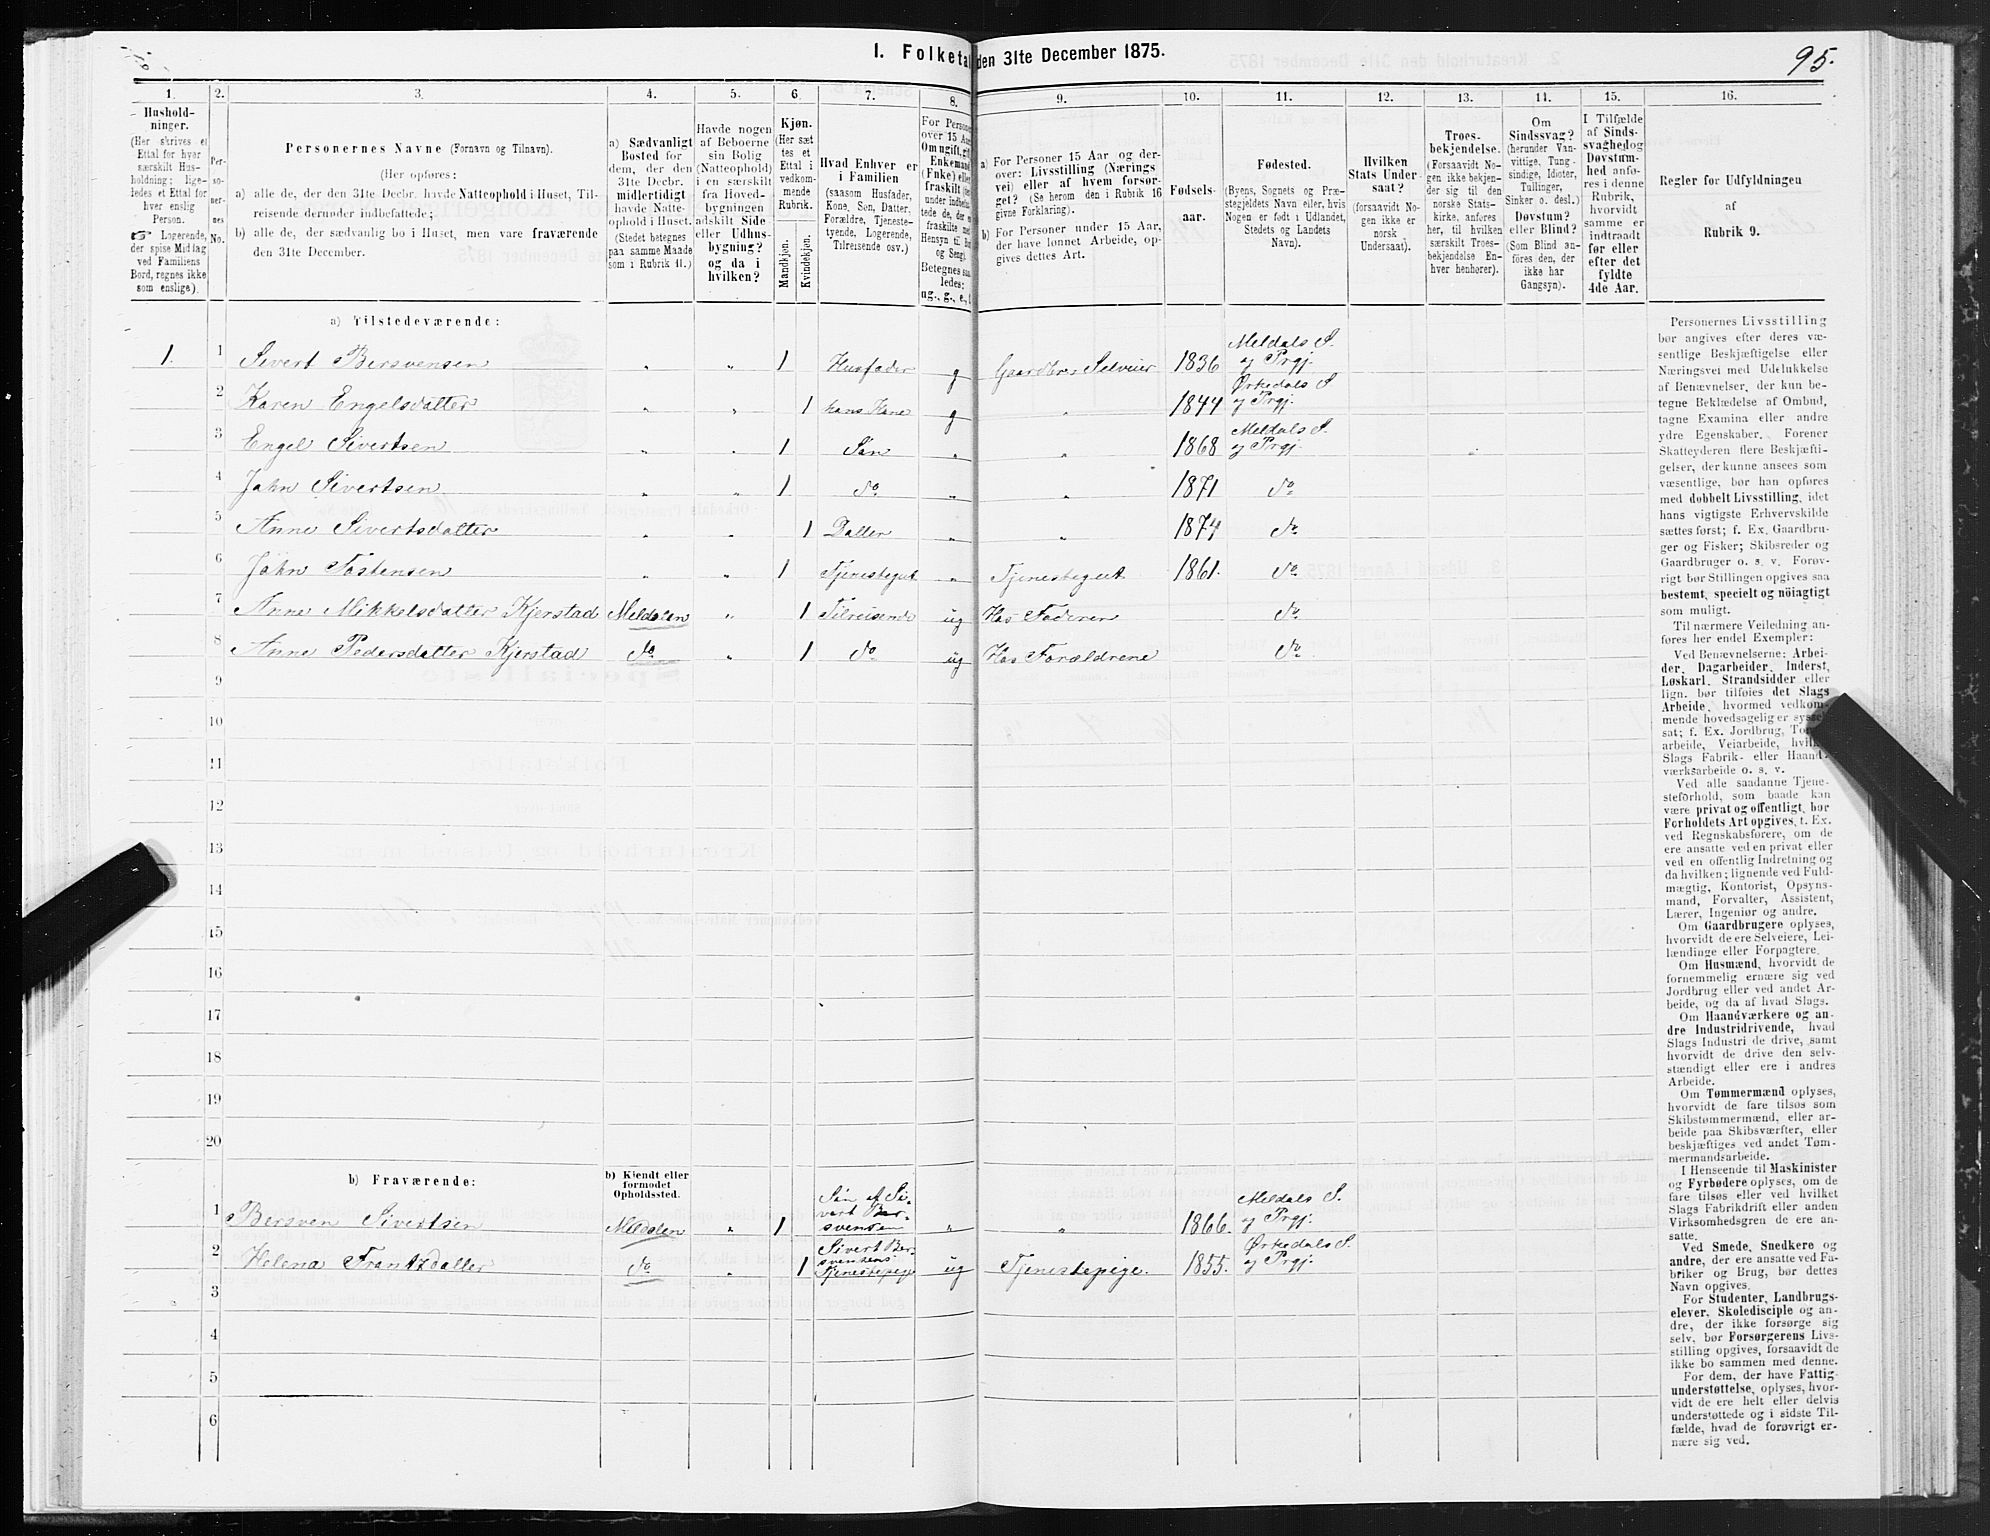 I. Folketal den 31te December 1875.
95.
1.
2.
3.
4.
5.
6.
7.
8.
9.
10.
11.
12.
13.
14.
15.
16.
Hushold-
ninger.
(Her skrives et
Ettal for hver
særskilt Hus-
holdning; lige-
ledes et Ettal for
hver enslig
Person.
☞ Logerende,
der spise Middag
ved Familiens
Bord, regnes ikke
som enslige).
Per-
so-
ner-
nes
No.
Personernes Navne (Fornavn og Tilnavn).
(Her opføres:
a) alle de, der den 31te Decbr. havde Natteophold i Huset, Til-
reisende derunder indbefattede;
b) alle de, der sædvanlig bo i Huset, men vare fraværende
den 31te December.
a) Sædvanligt
Bosted for
dem, der den
31te Decbr.
midlertidigt
havde Natte-
ophold i Huset.
(Stedet betegnes
paa samme Maade
som i Rubrik 11.)
Havde nogen
af Beboerne
sin Bolig
(Natteophold)
i en særskilt
fra Hoved-
bygningen
adskilt Side-
eller Udhus-
bygning?
og da i
hvilken?
Kjøn.
(Her sæt-
tes et
Ettal i
vedkom-
mende
Rubrik.
Mandkjøn.
Kvindekjøn.
Hvad Enhver er
i Familien
(saasom Husfader,
Kone, Søn, Datter,
Forældre, Tjeneste-
tyende, Logerende,
Tilreisende osv.)
For Personer
over 15 Aar:
Om ugift, gift,
Enkemand
(Enke) eller
fraskilt (se
under indbefat-
tede de, der ere
fraskilte med
Hensyn til Bord
og Seng).
Betegnes saa-
ledes:
ug., g., e., f.
a) For Personer 15 Aar og der-
over: Livsstilling (Nærings-
vei) eller af hvem forsør-
get? (Se herom den i Rubrik 16
givne Forklaring).
b) For Personer under 15 Aar,
der have lønnet Arbeide, op-
gives dettes Art.
Fødsels-
aar.
Fødested.
(Byens, Sognets og Præ-
stegjeldets Navn eller, hvis
Nogen er født i Udlandet,
Stedets og Landets
Navn).
Hvilken
Stats Under-
saat?
(forsaavidt No-
gen ikke er
norsk
Undersaat).
Troes-
bekjendelse.
(Forsaavidt No-
gen ikke bekjen-
der sig til den
norske Stats-
kirke, anføres
her, til hvilken
særskilt Troes-
bekjendelse En-
hver henhører).
Om
Sindssvag?
(herunder Van-
vittige, Tung-
sindige, Idioter,
Tullinger,
Sinker o. desl.)
Døvstum?
eller Blind?
(Som Blind an-
føres den, der
ikke har
Gangsyn).
I Tilfælde
af Sinds-
svaghed og
Døvstum-
hed anfø-
res i denne
Rubrik,
hvorvidt
samme er
indtraadt
før eller
efter det
fyldte
4de Aar.
Regler for Udfyldningen
af
Rubrik 9.
a) Tilstedeværende:
1. 1 Sivert Bersvensen „ „ 1 Husfader g Gaardbr. Selveier 1836 Meldals S. og Prgj.
2 Karen Engelsdatter „ „ 1 hans Kone g „ 1844 Ørkedals S. og Prgj.
3 Engel Sivertsen „ „ 1 Søn „ „ 1868 Meldals S. og Prgj.
4 John Sivertsen „ „ 1 do „ „ 1871 do
5 Anne Sivertsdatter „ „ 1 Datter „ „ 1874 do
6 John Tostensen „ „ 1 Tjenestegut „ Tjenestegut 1861. do
7 Anne Mikkelsdatter Kjerstad Meldalen „ 1 Tilreisende ug Hos Faderen do
8 Anne Pedersdatter Kjerstad do „ 1 do ug Hos Forældrene do
9
10
11
12
13
14
15
16
17
18
19
20
b) Fraværende:
b) Kjendt eller
formodet
Opholdssted.
1 Bersven Sivertsen Meldalen „ 1 Søn af Si-
vert Ber-
svensen „ „ 1866. Meldals S. og Prgj.
2 Helena Frantzdatter do „ 1 Sivert Ber-
svensens
Tjenestepige ug Tjenestepige. 1855. Ørkedals S. og Prgj.
3
4
5
6
Personernes Livsstilling
bør angives efter deres væ-
sentlige Beskjæftigelse eller
Næringsvei med Udelukkelse
af Benævnelser, der kun be-
tegne Beklædelse af Ombud,
tagne Examina eller andre
ydre Egenskaber. Forener
Skatteyderen flere Beskjæfti-
gelser, der kunne ansees som
væsentlige, bør han opføres
med dobbelt Livsstilling, idet
hans vigtigste Erhvervskilde
sættes først; f. Ex. Gaardbru-
ger og Fisker; Skibsreder og
Gaardbruger o. s. v. Forøv-
rigt bør Stillingen opgives saa
bestemt, specielt og nöiagtigt
som muligt.
Til nærmere Veiledning an-
føres her endel Exempler:
Ved Benævnelserne: Arbei-
der, Dagarbeider, Inderst,
Løskarl, Strandsidder eller
lign. bør tilføies det Slags
Arbeide, hvormed vedkom-
mende hovedsagelig er syssel-
sat; f. Ex. Jordbrug, Tom-
arbeide, Veiarbeide, hvilket
Slags Fabrik- eller Haand-
værksarbeide o. s. v.
Ved alle saadanne Tjene-
steforhold, som baade kan
være privat og offentligt, bør
Forholdets Art opgives, t. Ex.
ved Regnskabsførere, om de
ere ansatte ved en privat eller
ved en offentlig Indretning og
da hvilken; lignende ved Fuld-
mægtig, Kontorist, Opsyns-
mand, Forvalter, Assistent,
Lærer, Ingeniør og andre.
Om Gaardbrugere oplyses,
hvorvidt de ere Selveiere, Lei-
lændinge eller Forpagtere.
Om Husmænd, hvorvidt de
fornemmelig ernære sig ved
Jordbrug eller ved andet Ar-
beide, og da af hvad Slags.
Om Haandværkere og an-
dre Industridrivende, hvad
Slags Industri de drive, samt
hvorvidt de drive den selv-
stændigt eller ere i andres
Arbeide.
Om Tømmermænd oplyses,
hvorvidt de fare tilsøs som
Skibstømmermænd, eller ar-
beide paa Skibsværfter, eller
beskjæftiges ved andet Tøm-
mermandsarbeide.
I Henseende til Maskinister
og Fyrbødere oplyses, om de
fare tilsøs eller ved hvilket
Slags Fabrikdrift eller anden
Virksomhedsgren de ere an-
satte.
Ved Smede, Snedkere og
andre, der ere ansatte ved Fa-
briker og Brug, bør dettes
Navn opgives.
For Studenter, Landbrugs-
elever, Skoledisciple og an-
dre, der ikke forsørge sig
selv, bør Forsørgerens Livs-
stilling opgives, forsaavidt de
ikke bo sammen med denne.
For dem, der have Fattig-
understøttelse, oplyses, hvor-
vidt de ere helt eller delvis
understøttede og i sidste Til-
fælde, hvad de forøvrigt er-
nære sig ved.